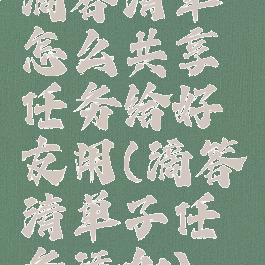 滴答清单
怎么共享
任务给好
友用(滴答
清单子任
务添加)